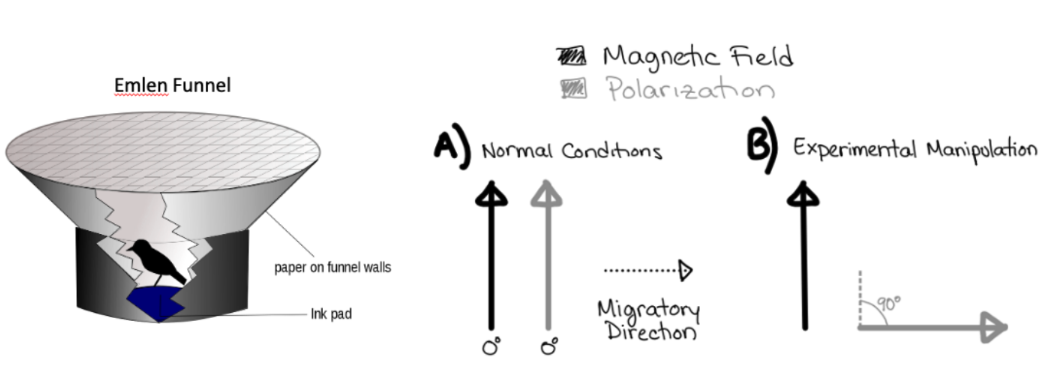 Emlen Funnel
paper on funnel walls
Ink pad
Magnetic Field
Polarization
A) Normal Conditions
0°
0°
Migratory
Direction
B) Experimental Manipulation
90°